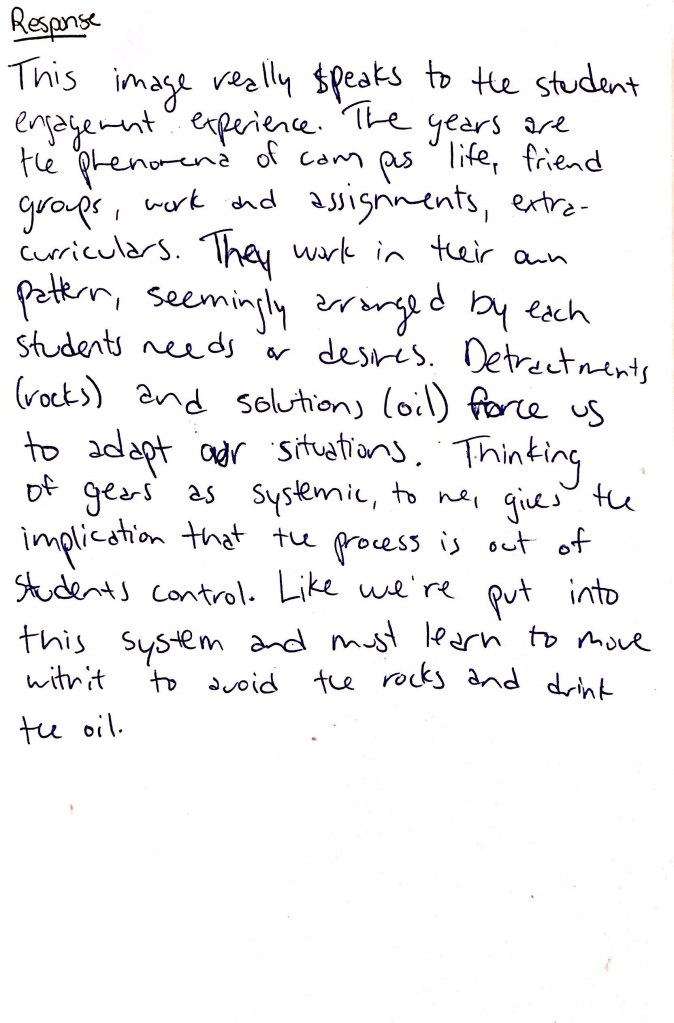 Response
This image really speaks to the student
engagement experience. The gears are
the phenomena of campus life, friend
groups, work and assignments, extra-
curriculars. They work in their own
pattern, seemingly arranged by each
students needs or desires. Detractments
(rocks) and solutions (oil) force us
to adapt our situations. Thinking
of gears as systemic, to me, gives the
implication that the process is out of
students control. Like we're put into
this system and must learn to move
with it to avoid the rocks and drink
the oil.